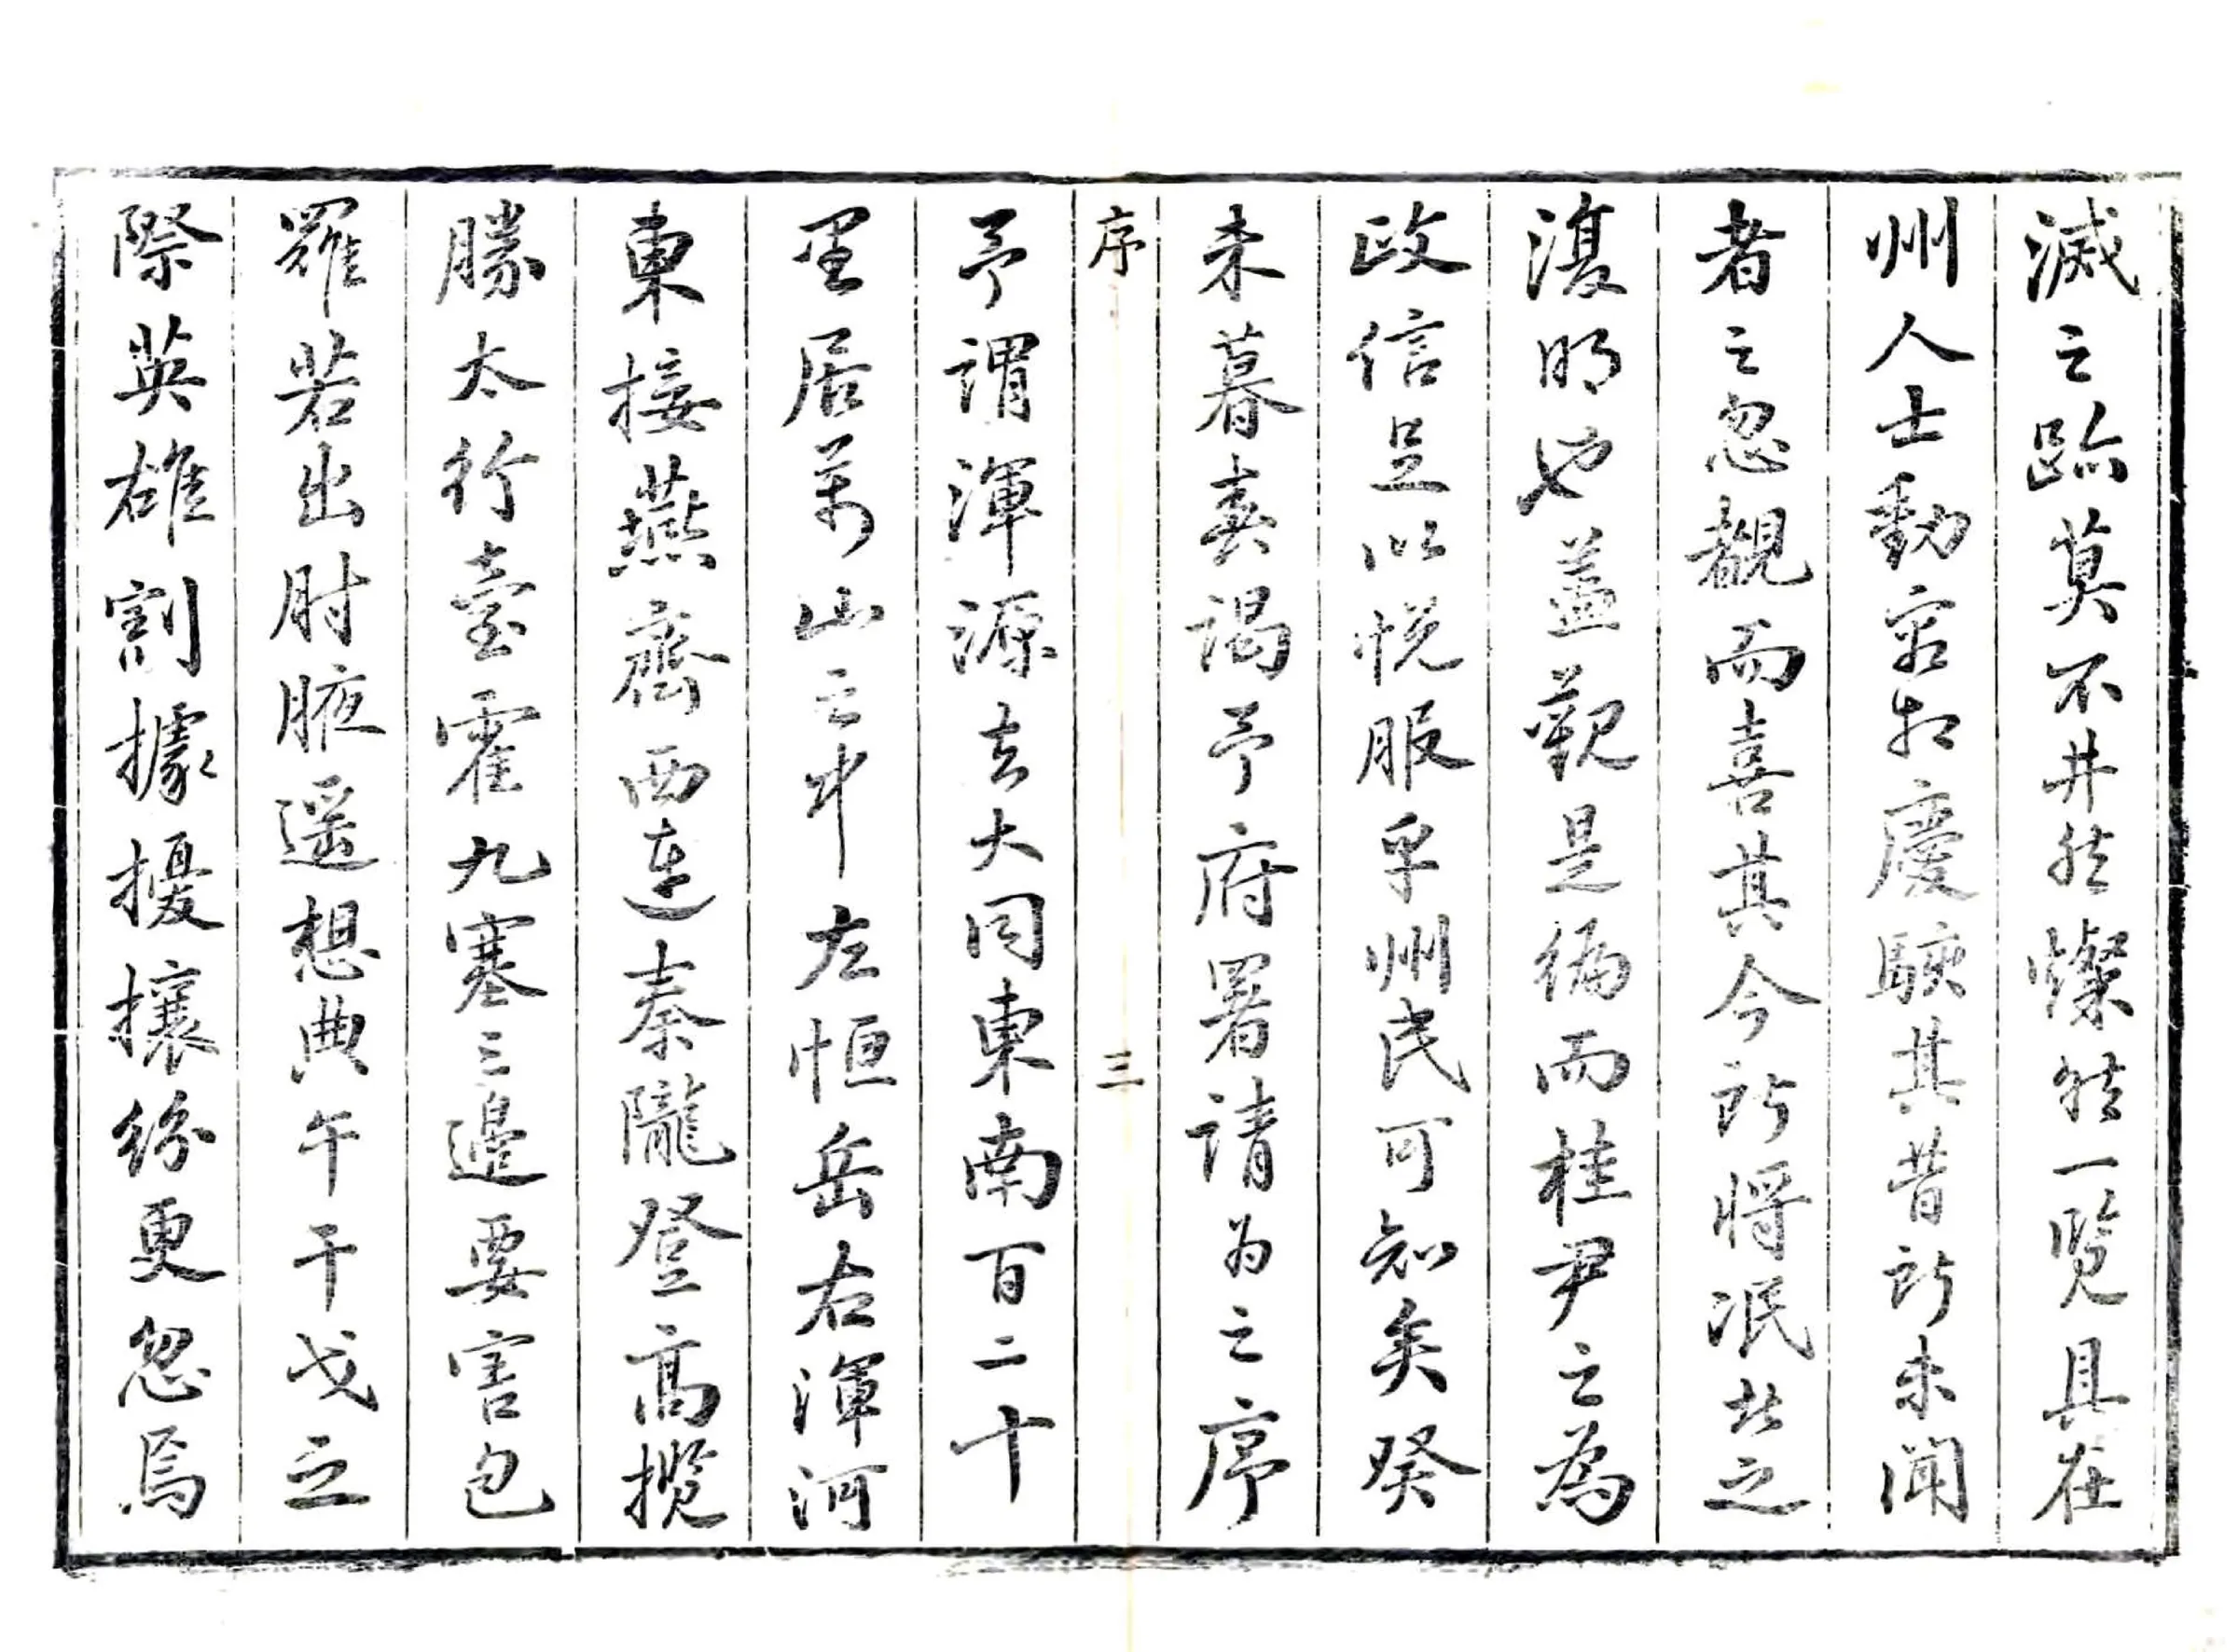 滅之跡莫不井然燦然一覽具在
州人士動容相慶駭其昔所未聞
者之忽覩而喜其今所將泯者之
復明也蓋觀是編而桂尹之為
政信足以悅服乎州民可知矣癸
未暮春謁予府署請為之序
序 三
予謂渾源去大同東南百二十
里居萬山之中左恒岳右渾河
東接燕齊西連秦隴登高攬
勝太行臺霍九塞三邊要害包
羅若出肘腋遥想典午干戈之
際英雄割據擾攘紛更忽焉